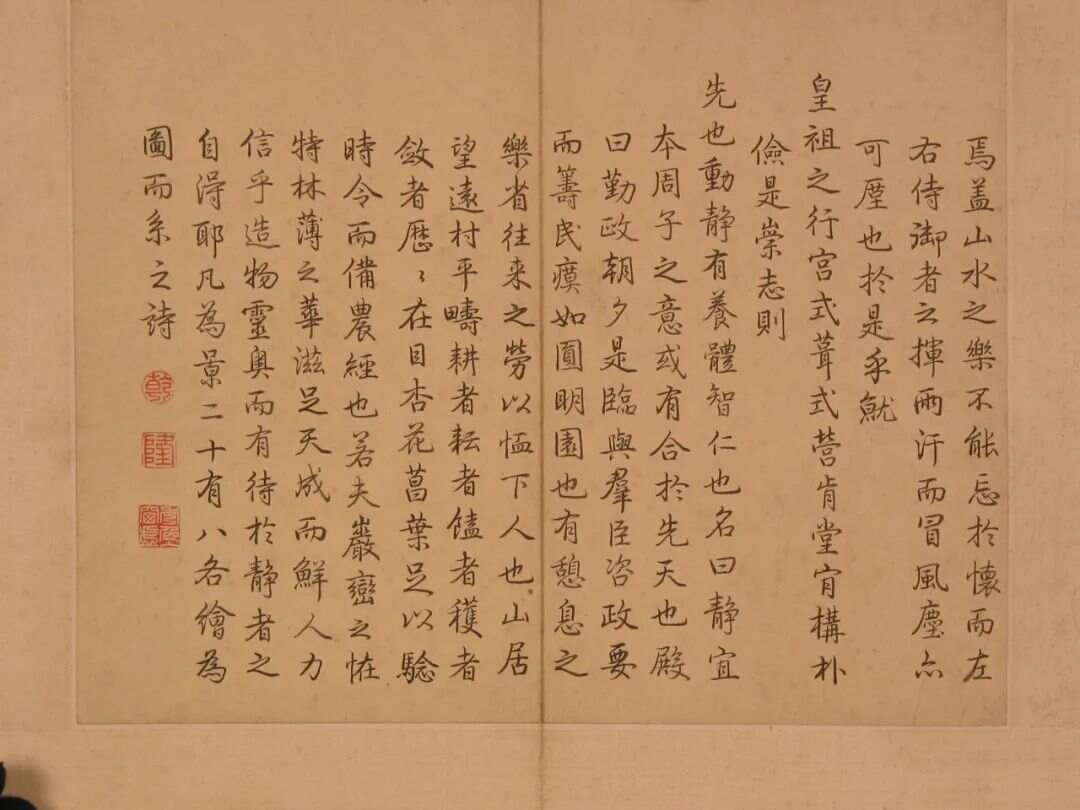 焉盖山水之樂不能忘於懷而左
右侍御者之揮雨汗而冒風塵亦
可廑也於是乎就
皇祖之行宫式葺式營肯堂肯構朴
儉是崇志則
先也動静有養體智仁也名曰静宜
本周子之意或有合於先天也殿
曰勤政朝夕是臨與羣臣咨政要
而籌民瘼如圓明園也有憩息之
樂省往來之勞以恤下人也山居
望遠村平疇耕者耘者饁者穫者
斂者歴〻在目杏花菖葉足以驗
時令而備農經也若夫巖巒之怪
特林薄之華滋足天成而鮮人力
信乎造物靈奥而有待於静者之
自得耶凡為景二十有八各繪為
圖而系之詩
乾
隆